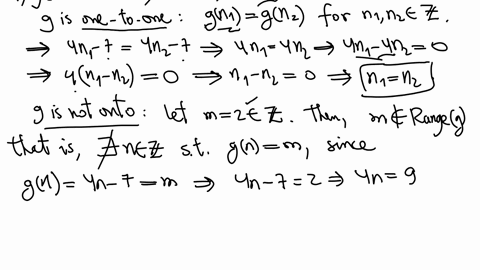 g is one-to-one : g(n₁) = g(n₂) for n₁, n₂ ∈ ℤ.
⇒ 4n₁-7 = 4n₂-7 ⇒ 4n₁ = 4n₂ ⇒ 4n₁-4n₂ = 0
⇒ 4(n₁-n₂) = 0 ⇒ n₁-n₂ = 0 ⇒ n₁ = n₂
g is not onto : let m = 2 ∈ ℤ. Then, m ∉ Range(g)
that is, ∄ n ∈ ℤ s.t. g(n) = m, since
g(n) = 4n-7 = m ⇒ 4n-7 = 2 ⇒ 4n = 9